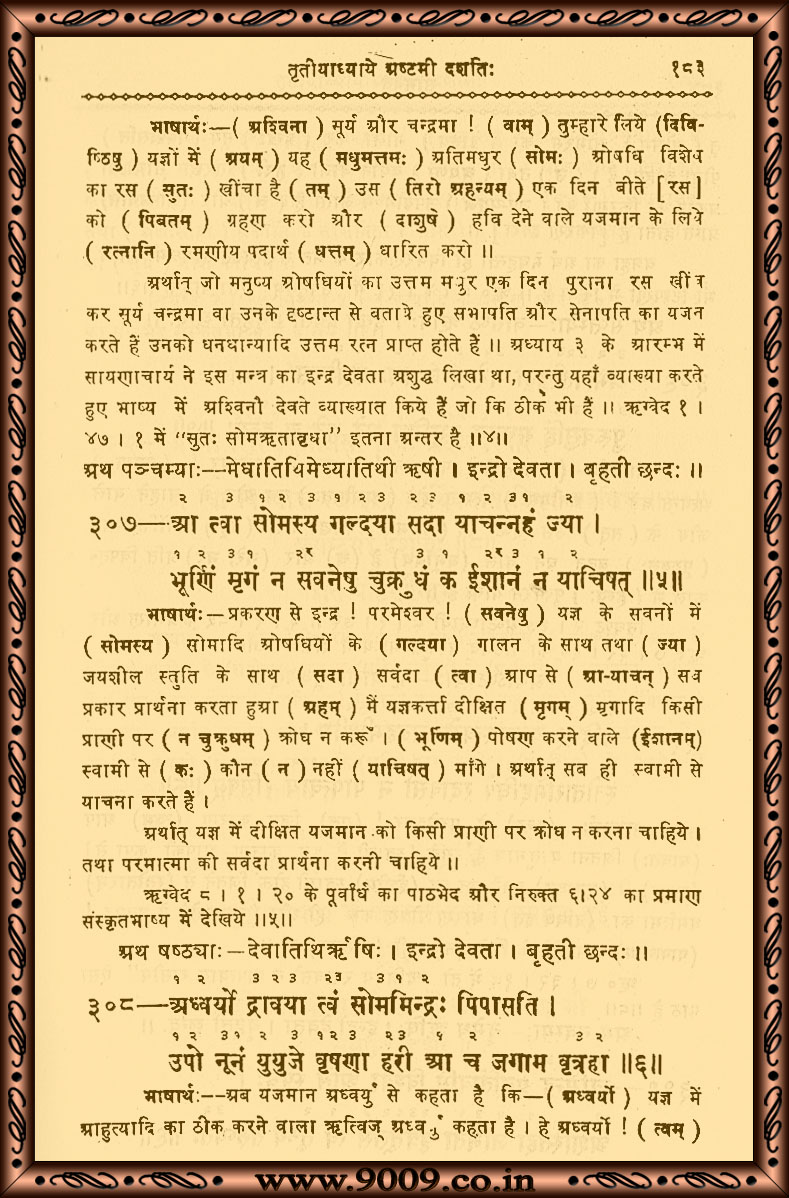 तृतीयाध्याये अष्टमी दशतिः १८३
भाषार्थः—( अश्विना ) सूर्य और चन्द्रमा ! ( वाम् ) तुम्हारे लिये (दिवि-
ष्टिषु ) यज्ञों में ( अयम् ) यह ( मधुमत्तमः ) अतिमधुर ( सोमः ) ओषधि विशेष
का रस ( सुतः ) खींचा है ( तम् ) उस ( तिरो अहन्यम् ) एक दिन बीते [रस]
को ( पिबतम् ) ग्रहण करो और ( दाशुषे ) हवि देने वाले यजमान के लिये
( रत्नानि ) रमणीय पदार्थ ( धत्तम् ) धारित करो ॥
अर्थात् जो मनुष्य ओषधियों का उत्तम मधुर एक दिन पुराना रस खींच
कर सूर्य चन्द्रमा वा उनके दृष्टान्त से बताये हुए सभापति और सेनापति का यजन
करते हैं उनको धनधान्यादि उत्तम रत्न प्राप्त होते हैं ॥ अध्याय ३ के आरम्भ में
सायणाचार्य ने इस मन्त्र का इन्द्र देवता अशुद्ध लिखा था, परन्तु यहाँ व्याख्या करते
हुए भाष्य में अश्विनौ देवते व्याख्यात किये हैं जो कि ठीक भी हैं ॥ ऋग्वेद १ ।
४७ । १ में “सुतः सोमऋतावृधा” इतना अन्तर है ॥४॥
अथ पञ्चम्याः—मेधातिथिमेध्यातिथी ऋषी । इन्द्रो देवता । बृहती छन्दः ॥
२ ३ १ २ ३ १ २३ २३ १ २ ३१ २
३०७—आ त्वा सोमस्य गल्दया सदा याचन्नहं ज्या ।
१ २ ३१ २र ३ १ २र ३ १ २
भूर्णिं मृगं न सवनेषु चुक्रुधं क ईशानं न याचिषत् ॥५॥
भाषार्थः—प्रकरण से इन्द्र ! परमेश्वर ! ( सवनेषु ) यज्ञ के सवनों में
( सोमस्य ) सोमादि ओषधियों के ( गल्दया ) गालन के साथ तथा ( ज्या )
जयशील स्तुति के साथ ( सदा ) सर्वदा ( त्वा ) आप से ( आ-याचन् ) सब
प्रकार प्रार्थना करता हुआ ( अहम् ) मैं यज्ञकर्त्ता दीक्षित ( मृगम् ) मृगादि किसी
प्राणी पर ( न चुक्रुधम् ) क्रोध न करूँ । ( भूर्णिम् ) पोषण करने वाले (ईशानम्)
स्वामी से ( कः ) कौन ( न ) नहीं ( याचिषत् ) माँगे । अर्थात् सब ही स्वामी से
याचना करते हैं ।
अर्थात् यज्ञ में दीक्षित यजमान को किसी प्राणी पर क्रोध न करना चाहिये ।
तथा परमात्मा की सर्वदा प्रार्थना करनी चाहिये ॥
ऋग्वेद ८ । १ । २० के पूर्वार्ध का पाठभेद और निरुक्त ६।२४ का प्रमाण
संस्कृतभाष्य में देखिये ॥५॥
अथ षष्ठ्याः—देवातिथिर्ऋषिः । इन्द्रो देवता । बृहती छन्दः ॥
१ २ ३ २ ३ २३ ३ १ २
३०८—अध्वर्यो द्रावया त्वं सोममिन्द्रः पिपासति ।
१ २ ३१ २ ३ १२ ३ २३ १ २ ३ २
उपो नूनं युयुजे वृषणा हरी आ च जगाम वृत्रहा ॥६॥
भाषार्थः—अब यजमान अध्वर्यु से कहता है कि—( अध्वर्यो ) यज्ञ में
आहुत्यादि का ठीक करने वाला ऋत्विज् अध्वर्यु कहता है । हे अध्वर्यो ! ( त्वम् )
www.9009.co.in